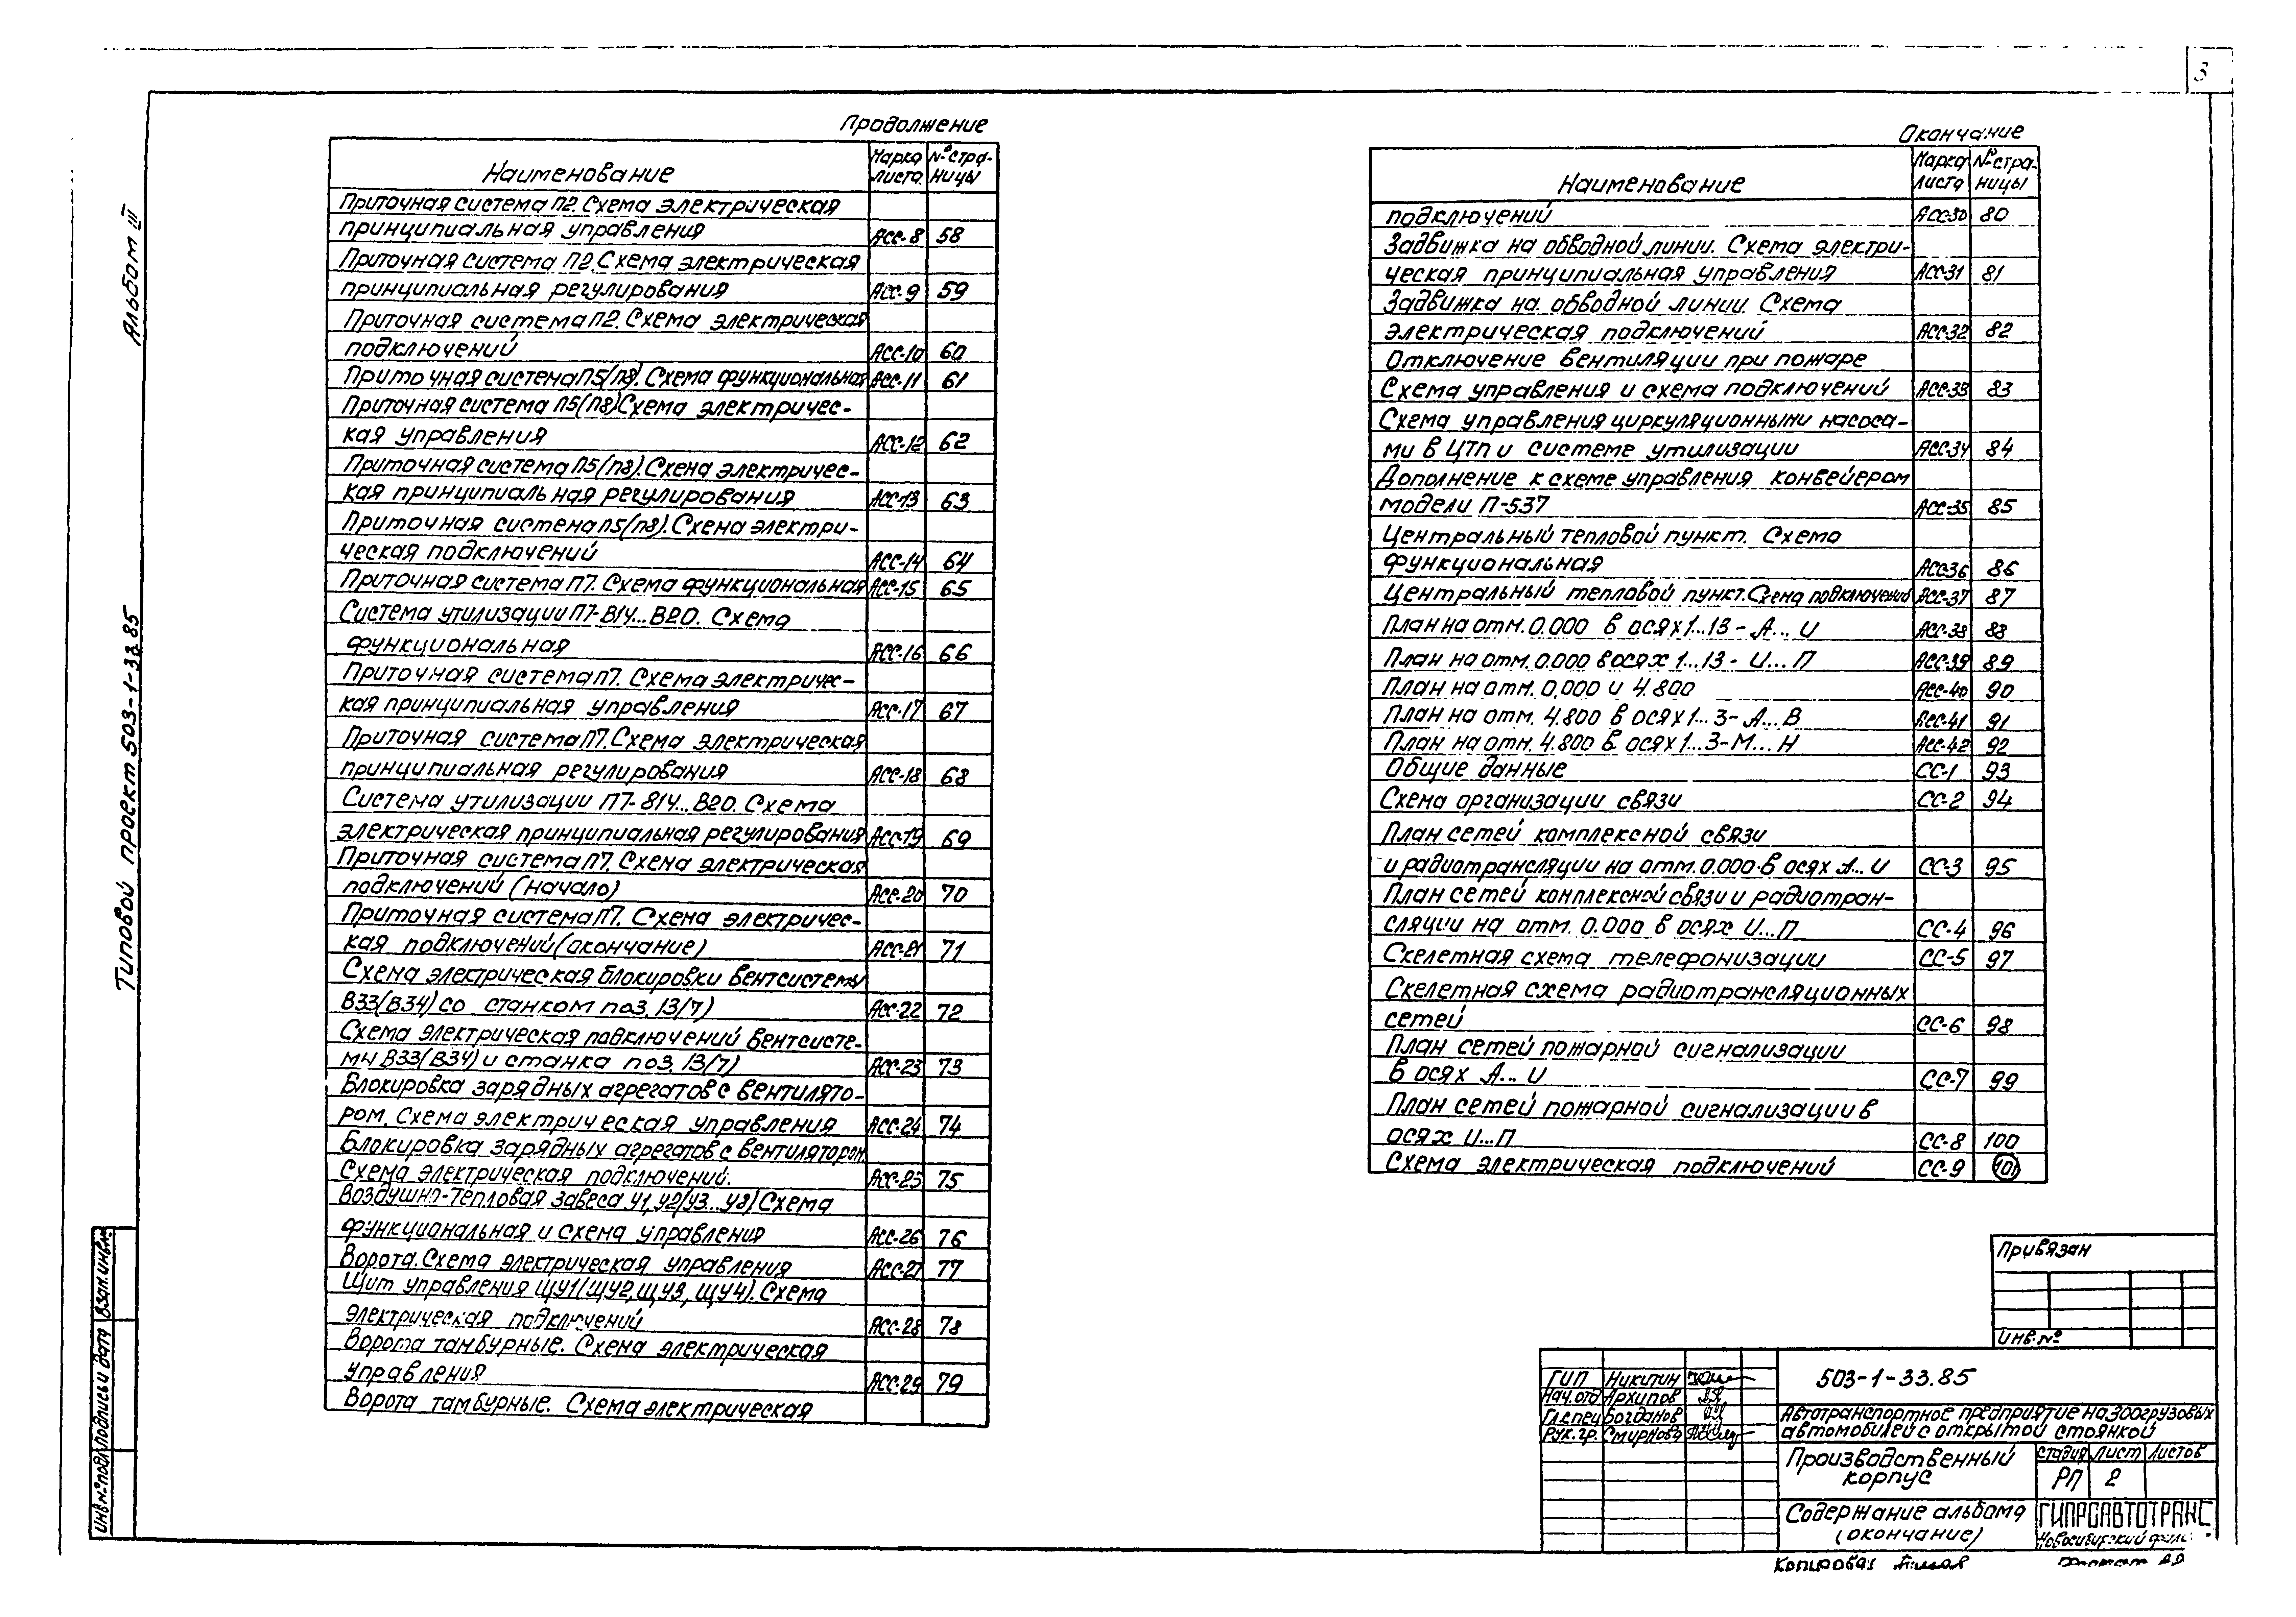 3
Альбом III
Типовой проект 503-1-33.85
Продолжение
Наименование | Марка листа | № страницы
Приточная система П2. Схема электрическая
принципиальная управления АСС-8 58
Приточная система П2. Схема электрическая
принципиальная регулирования АСС-9 59
Приточная система П2. Схема электрическая
подключений АСС-10 60
Приточная система П5(П8). Схема функциональная АСС-11 61
Приточная система П5(П8) Схема электричес-
кая управления АСС-12 62
Приточная система П5(П8). Схема электричес-
кая принципиальная регулирования АСС-13 63
Приточная система П5(П8). Схема электри-
ческая подключений АСС-14 64
Приточная система П7. Схема функциональная АСС-15 65
Система утилизации П7-В14...В20. Схема
функциональная АСС-16 66
Приточная система П7. Схема электричес-
кая принципиальная управления АСС-17 67
Приточная система П7. Схема электрическая
принципиальная регулирования АСС-18 68
Система утилизации П7-В14...В20. Схема
электрическая принципиальная регулирования АСС-19 69
Приточная система П7. Схема электрическая
подключений (начало) АСС-20 70
Приточная система П7. Схема электричес-
кая подключений (окончание) АСС-21 71
Схема электрическая блокировки вентсистемы
В33(В34) со станком поз. 13/7) АСС-22 72
Схема электрическая подключений вентсисте-
мы В33(В34) и станка поз. 13/7) АСС-23 73
Блокировка зарядных агрегатов с вентилято-
ром. Схема электрическая управления АСС-24 74
Блокировка зарядных агрегатов с вентилятором
Схема электрическая подключений. АСС-25 75
Воздушно-тепловая завеса У1, У2(У3...У8) Схема
функциональная и схема управления АСС-26 76
Ворота. Схема электрическая управления АСС-27 77
Щит управления ЩУ1(ЩУ2, ЩУ3, ЩУ4). Схема
электрическая подключений АСС-28 78
Ворота тамбурные. Схема электрическая
управления АСС-29 79
Ворота тамбурные. Схема электрическая
Окончание
Наименование | Марка листа | № страницы
подключений АСС-30 80
Задвижка на обводной линии. Схема электри-
ческая принципиальная управления АСС-31 81
Задвижка на обводной линии. Схема
электрическая подключений АСС-32 82
Отключение вентиляции при пожаре
Схема управления и схема подключений АСС-33 83
Схема управления циркуляционными насоса-
ми в ЦТП и системе утилизации АСС-34 84
Дополнение к схеме управления конвейером
модели П-537 АСС-35 85
Центральный тепловой пункт. Схема
функциональная АСС-36 86
Центральный тепловой пункт. Схема подключений АСС-37 87
План на отм. 0.000 в осях 1...13 - А... И АСС-38 88
План на отм. 0.000 в осях 1...13 - И...П АСС-39 89
План на отм. 0.000 и 4.800 АСС-40 90
План на отм. 4.800 в осях 1...3-А...В АСС-41 91
План на отм. 4.800 в осях 1...3-М...Н АСС-42 92
Общие данные СС-1 93
Схема организации связи СС-2 94
План сетей комплексной связи
и радиотрансляции на отм. 0.000 в осях А...И СС-3 95
План сетей комплексной связи и радиотран-
сляции на отм. 0.000 в осях И...П СС-4 96
Скелетная схема телефонизации СС-5 97
Скелетная схема радиотрансляционных
сетей СС-6 98
План сетей пожарной сигнализации
в осях А...И СС-7 99
План сетей пожарной сигнализации в
осях И...П СС-8 100
Схема электрическая подключений СС-9 101
Привязан
Инв.№
ГИП Никитин
Нач.отд Архипов
Гл.спец Богданов
Рук.гр. Смирнова
503-1-33.85
Автотранспортное предприятие на 300 грузовых
автомобилей с открытой стоянкой
Производственный
корпус
Стадия Лист Листов
РП 2
Содержание альбома
(окончание)
ГИПРОАВТОТРАНС
Новосибирский филиал
Копировал
Формат
Инв.№ подл Подпись и дата Взам.инв.№